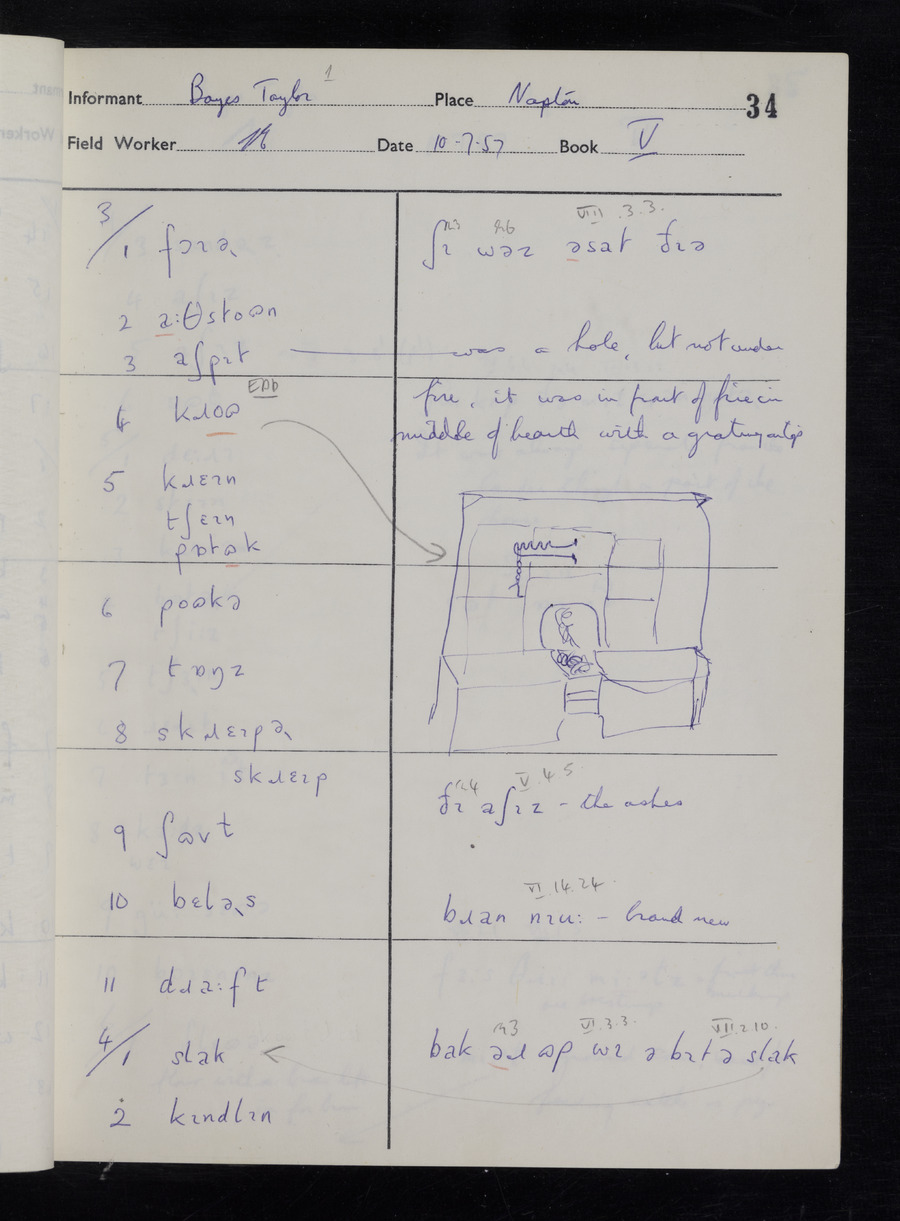 Informant Bayes Taylor 1 Place Napton 34
Field Worker Date 10-7-57 Book V
3/1 fəɪə˞ ʃɪ wəz əsat ðɪə
VIII.3.3.
2 a:θstoʊn
3 aʃpɪt was a hole, but not under
fire, it was in front of fire in
middle of hearth with a grating on top
4 kɹoʊ EDD
5 kɹɛɪn
tʃɛɪn
pɒtʊk
6 pookə
7 tɒŋz
8 skɹɛɪpə˞
skɹɛɪp
V.4.5
ðɪ aʃɪz - the ashes
9 ʃʊvt
VI.14.24.
10 bɛlə˞s bɹan nɪu: - brand new
11 dɹa:ft
VI.3.3. VII.2.10.
4/1 slak bak əɹ ʊp wɪ ə bɪt ə slak
2 kɪndlɪn